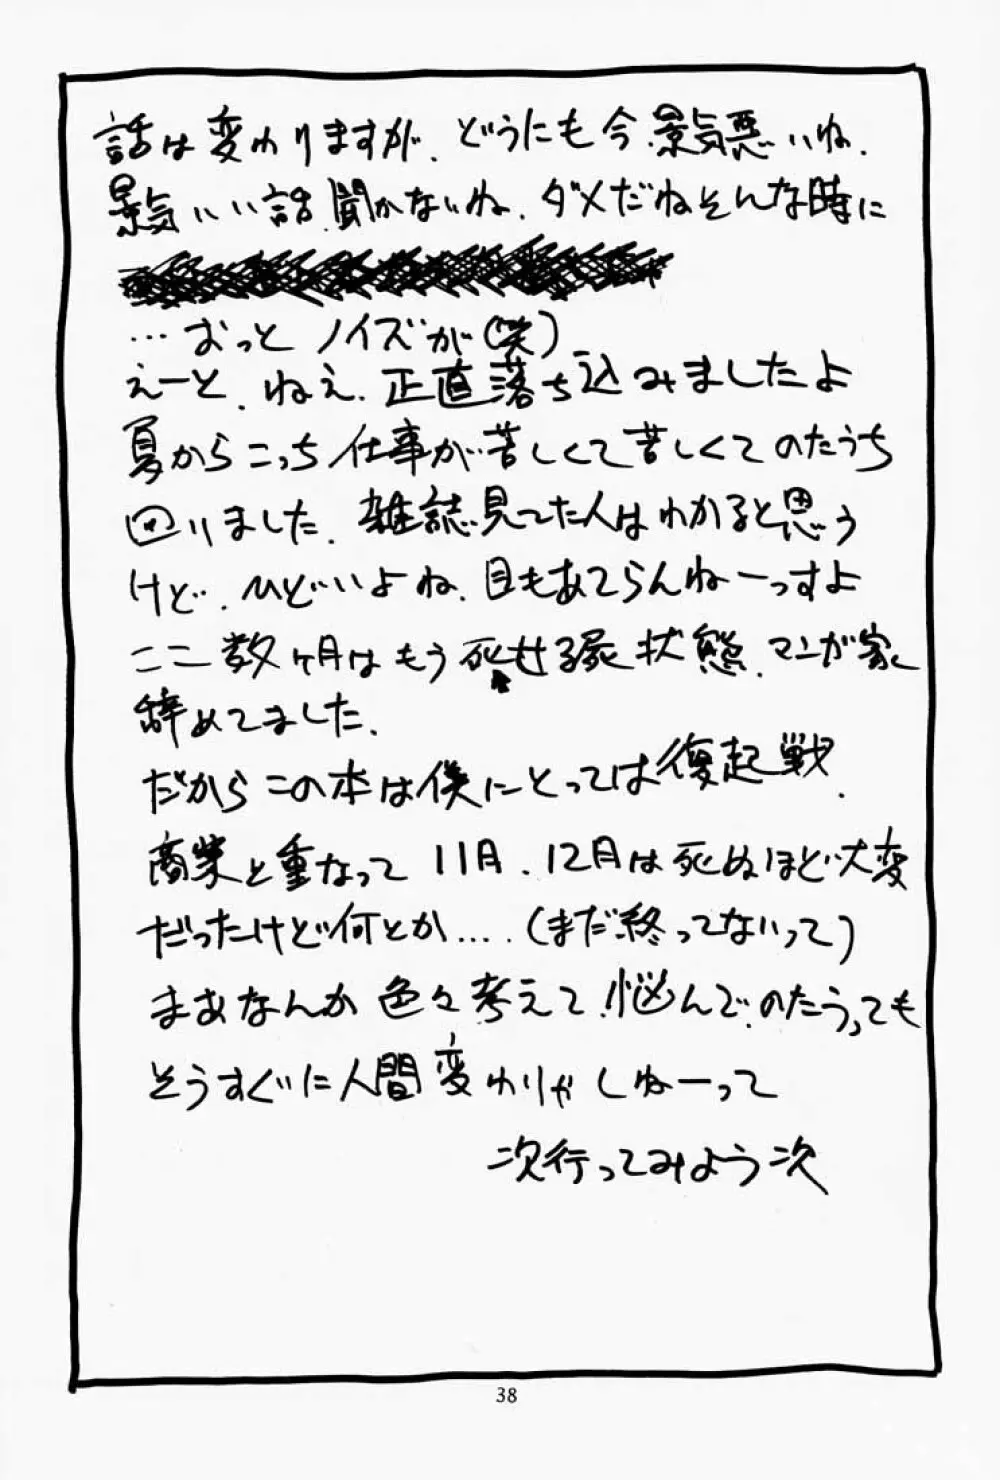 話は変わりますが、どうにも今、景気悪いね、
景気いい話、聞かないね、ダメだねそんな時に
…おっと ノイズが(笑)
えーと、ねえ、正直落ち込みましたよ
夏からこっち 仕事が苦しくて苦しくてのたうち
回りました、雑誌見てた人はわかると思う
けど、ひどいよね、目もあてらんねーっすよ
ここ数ヶ月はもう死せる屍状態、マンガ家
辞めてました、
だからこの本は僕にとっては復起戦、
商業と重なって 11月、12月は死ぬほど大変
だったけど何とか….(まだ終ってないって)
まあなんか色々考えて、悩んで、のたうっても
そうすぐに人間変わりゃしねーって
次行ってみよう次
38